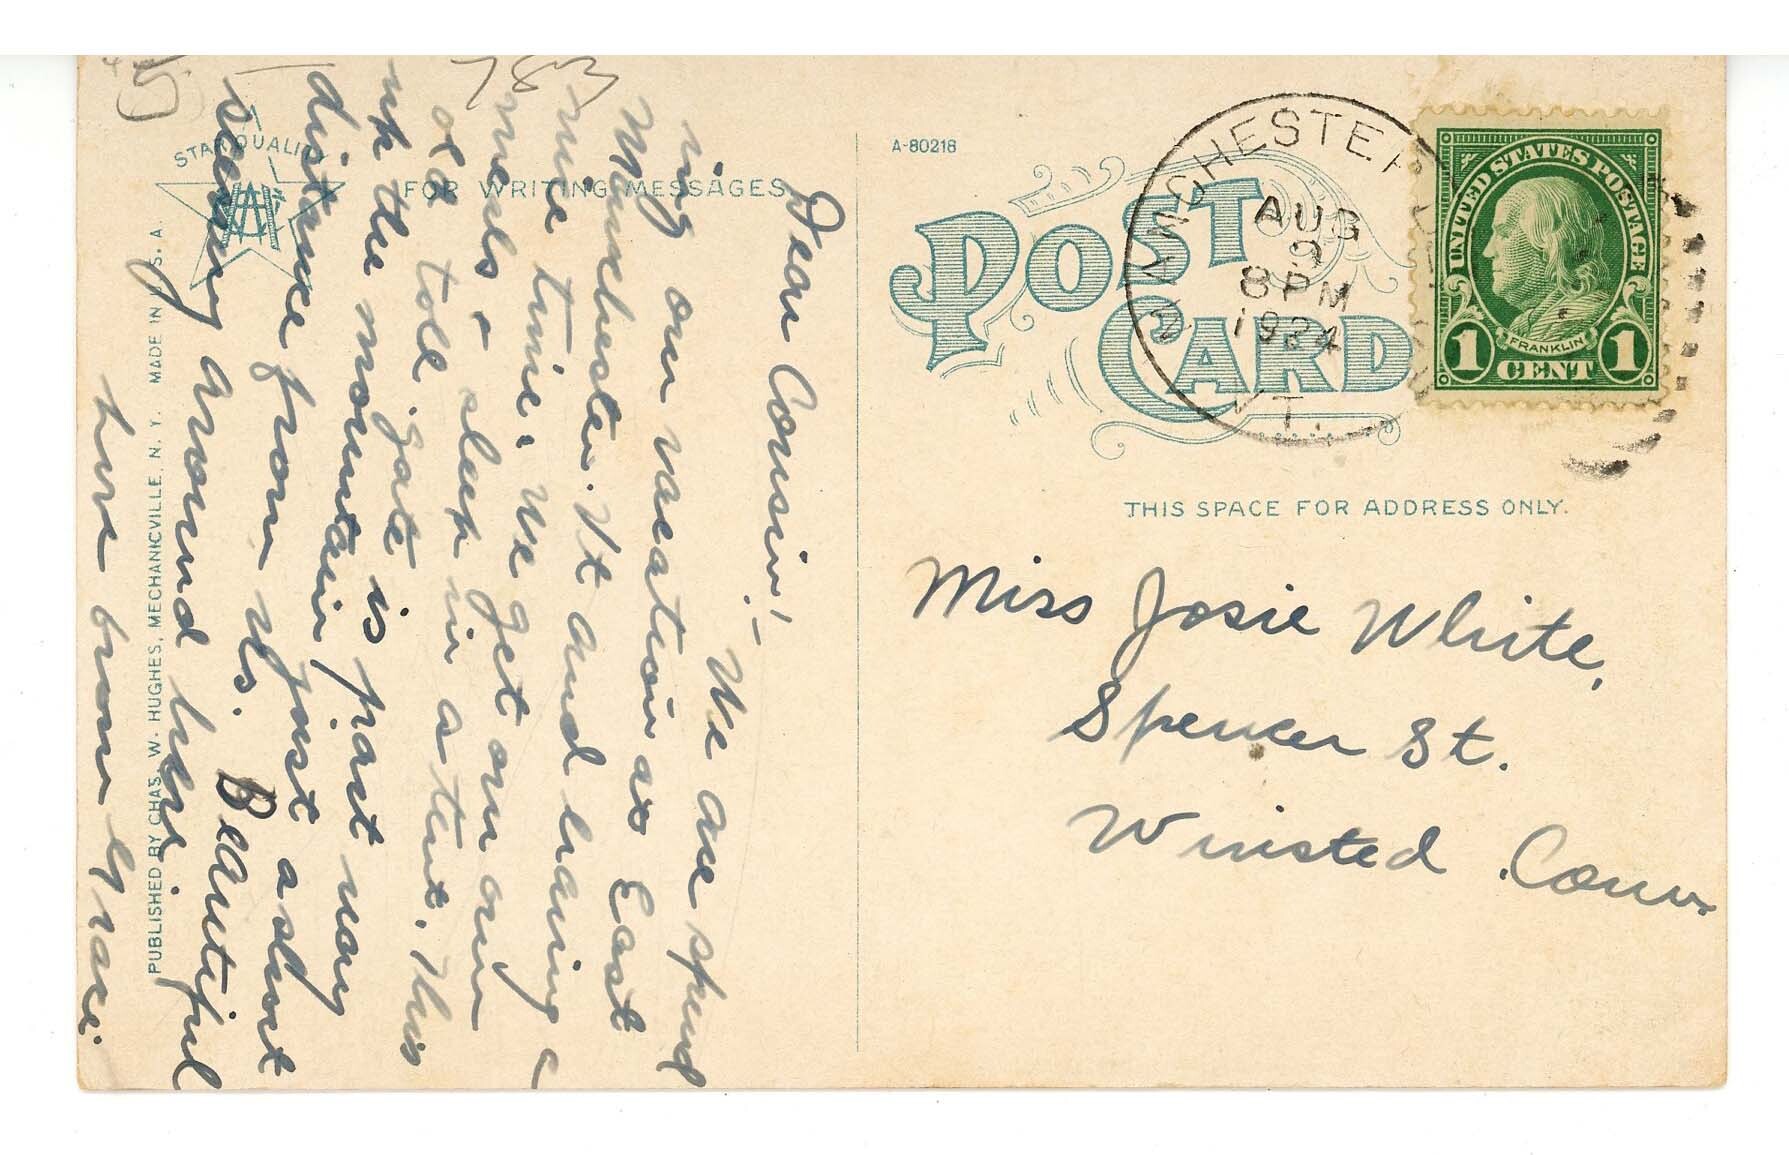 783
Dear Cousin!—
We are spend
ing our vacation at East
Manchester, Vt and having a
nice time. We get our own
meals & sleep in a tent. This
old toll gate is part way
up the mountain just a short
distance from us. Beautiful
scenery around here
Love from Grace.
STAR QUALITY
FOR WRITING MESSAGES
PUBLISHED BY CHAS. W. HUGHES, MECHANICVILLE, N. Y. MADE IN U. S. A.
A-80218
POST
CARD
MANCHESTER
AUG
9
8 PM
1924
VT.
UNITED STATES POSTAGE
FRANKLIN
1 CENT 1
THIS SPACE FOR ADDRESS ONLY.
Miss Josie White,
Spencer St.
Winsted Conn.